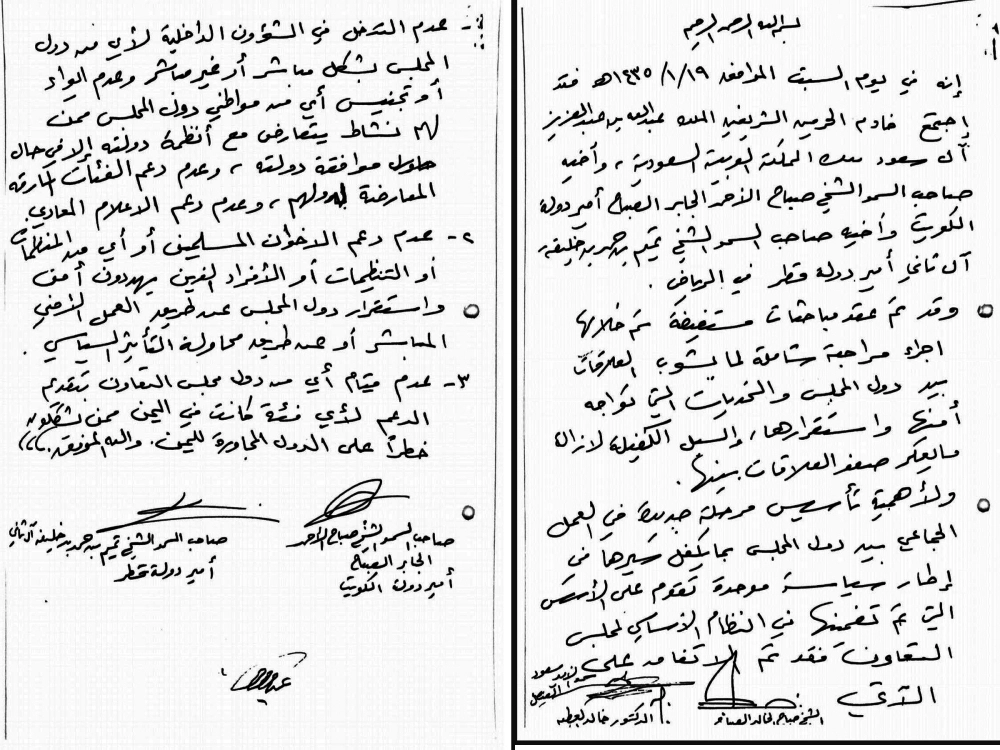 بسم الله الرحمن الرحيم
إنه في يوم السبت الموافق ١٤٣٥/١/١٩هـ فقد
اجتمع خادم الحرمين الشريفين الملك عبدالله بن عبدالعزيز
آل سعود ملك المملكة العربية السعودية، وأخيه
صاحب السمو الشيخ صباح الأحمد الجابر الصباح أمير دولة
الكويت وأخيه صاحب السمو الشيخ تميم بن حمد بن خليفه
آل ثاني أمير دولة قطر في الرياض.
وقد تم عقد مباحثات مستفيضة تم خلالها
اجراء مراجعة شاملة لما يشوب العلاقات
بين دول المجلس والتحديات التي تواجه
أمنها واستقرارها، والسبل الكفيلة لازالة
مايعكر صفو العلاقات بينها.
ولأهمية تأسيس مرحلة جديدة في العمل
الجماعي بين دول المجلس بما يكفل سيرها في
إطار سياسة موحدة تقوم على الأسس
التي تم تضمينها في النظام الأساسي لمجلس
التعاون فقد تم الاتفاق على
الآتي
سعود الفيصل
الشيخ صباح الخالد الصباح
الدكتور خالد العطيه
١- عدم التدخل في الشؤون الداخلية لأي من دول
المجلس بشكل مباشر أو غير مباشر وعدم ايواء
أو تجنيس أي من مواطني دول المجلس ممن
لهم نشاط يتعارض مع أنظمة دولته إلا في حال
موافقة دولته، وعدم دعم الفئات المارقه
المعارضة لدولهم، وعدم دعم الاعلام المعادي.
٢- عدم دعم الاخوان المسلمين أو أي من المنظمات
أو التنظيمات أو الأفراد الذين يهددون أمن
واستقرار دول المجلس عن طريق العمل الأمني
المباشر أو عن طريق محاولة التأثير السياسي.
٣- عدم قيام أي من دول مجلس التعاون بتقديم
الدعم لأي فئة كانت في اليمن ممن يشكلون
خطراً على الدول المجاورة لليمن. والله الموفق،،،
صاحب السمو الشيخ صباح الأحمد
الجابر الصباح
أمير دولة الكويت
صاحب السمو الشيخ تميم بن حمد بن خليفه آل ثاني
أمير دولة قطر